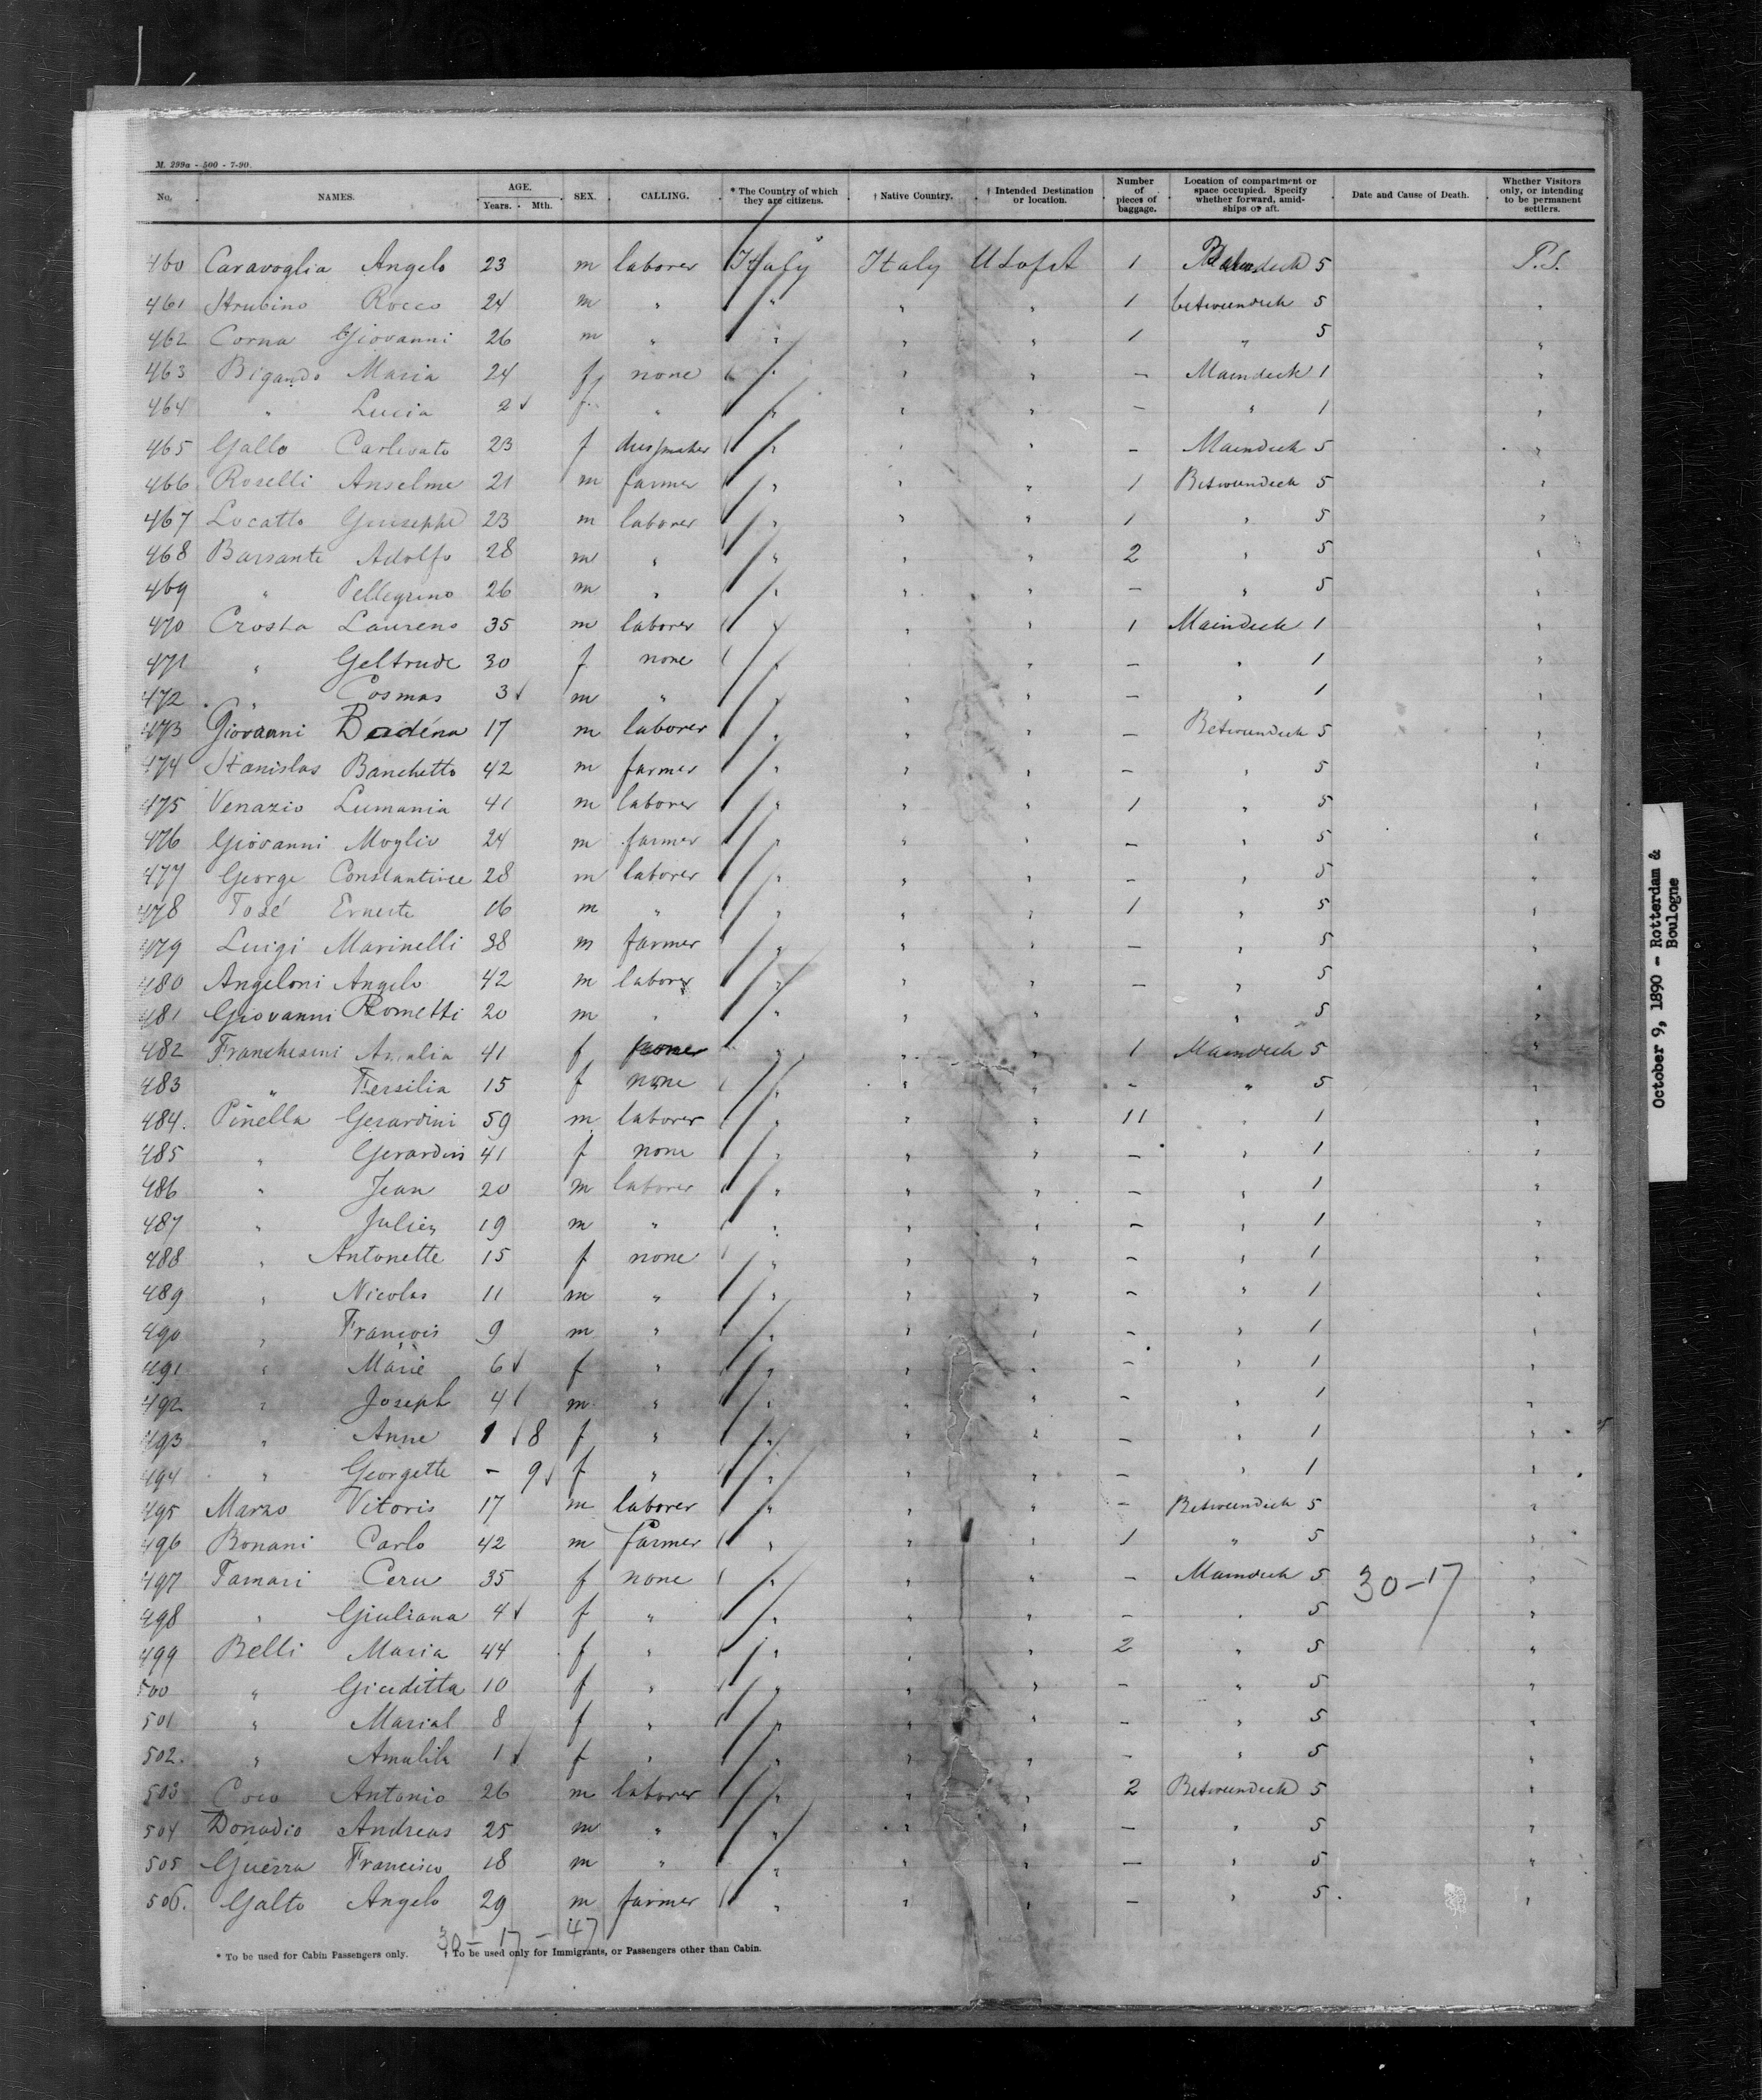 M. 299a - 500 - 7-90.
No. NAMES. AGE. Years. Mth. SEX. CALLING. * The Country of which they are citizens. † Native Country. † Intended Destination or location. Number of pieces of baggage. Location of compartment or space occupied. Specify whether forward, amidships or aft. Date and Cause of Death. Whether Visitors only, or intending to be permanent settlers.
460 Caravoglia Angelo 23 m laborer Italy Italy U S of A 1 5 P.S.
461 Strubino Rocco 24 m " " " " 1 betweendeck 5 "
462 Corna Giovanni 26 m " " " " 1 " 5 "
463 Bigando Maria 24 f none " " " - Maindeck 1 "
464 " Lucia 2 f " " " " - " 1 "
465 Gallo 23 f dressmaker " " " - Maindeck 5 "
466 Roselli Anselme 21 m farmer " " " 1 Betweendeck 5 "
467 Locatto Guiseppe 23 m laborer " " " 1 " 5 "
468 Barsante Adolfo 28 m " " " " 2 " 5 "
469 " Pellegrino 26 m " " " " - " 5 "
470 Crosta Laurens 35 m laborer " " " 1 Maindeck 1 "
471 " Geltrude 30 f none " " " - " 1 "
472 " Cosmas 3 m " " " " - " 1 "
473 Giovanni Badéna 17 m laborer " " " - Betweendeck 5 "
474 Stanislas Banchetto 42 m farmer " " " - " 5 "
475 Venazio Lumania 41 m laborer " " " 1 " 5 "
476 Giovanni Moglio 24 m farmer " " " - " 5 "
477 George Constantine 28 m laborer " " " - " 5 "
478 José Erneste 16 m " " " " 1 " 5 "
479 Luigi Marinelli 38 m farmer " " " - " 5 "
480 Angeloni Angelo 42 m laborer " " " - " 5 "
481 Giovanni Rometti 20 m " " " " " 5 "
482 Franchesini Amalia 41 f none " " " 1 Maindeck 5 "
483 " Fersilia 15 f none " " " - " 5 "
484. Pinella Gerardini 59 m laborer " " " 11 " 1 "
485 " Gerardin 41 f none " " " - " 1 "
486 " Jean 20 m laborer " " " - " 1 "
487 " Julien 19 m " " " " - " 1 "
488 " Antonette 15 f none " " " - " 1 "
489 " Nicolas 11 m " " " " - " 1 "
490 " François 9 m " " " " - " 1 "
491 " Marie 6 f " " " " - " 1 "
492 " Joseph 4 m " " " " - " 1 "
493 " Anne 1 8 f " " " " - " 1 "
494 " Georgette - 9 f " " " " - " 1 "
495 Marzo Vitoris 17 m laborer " " " - Betweendeck 5 "
496 Bonani Carlo 42 m farmer " " " 1 " 5 "
497 Tamari Ceru 35 f none " " " - Maindeck 5 30-17 "
498 " Giuliana 4 f " " " " - " 5 "
499 Belli Maria 44 f " " " " 2 " 5 "
500 " Giuditta 10 f " " " " - " 5 "
501 " Marial 8 f " " " " - " 5 "
502. " 1 f " " " " - " 5 "
503 Coco Antonio 26 m laborer " " " 2 Betweendeck 5 "
504 Donadio Andreas 25 m " " " " - " 5 "
505 Guerra Francisco 18 m " " " " - " 5 "
506. Galto Angelo 29 m farmer " " " - " 5 "
30-17-47
* To be used for Cabin Passengers only. † To be used only for Immigrants, or Passengers other than Cabin.
October 9, 1890 - Rotterdam &
Boulogne